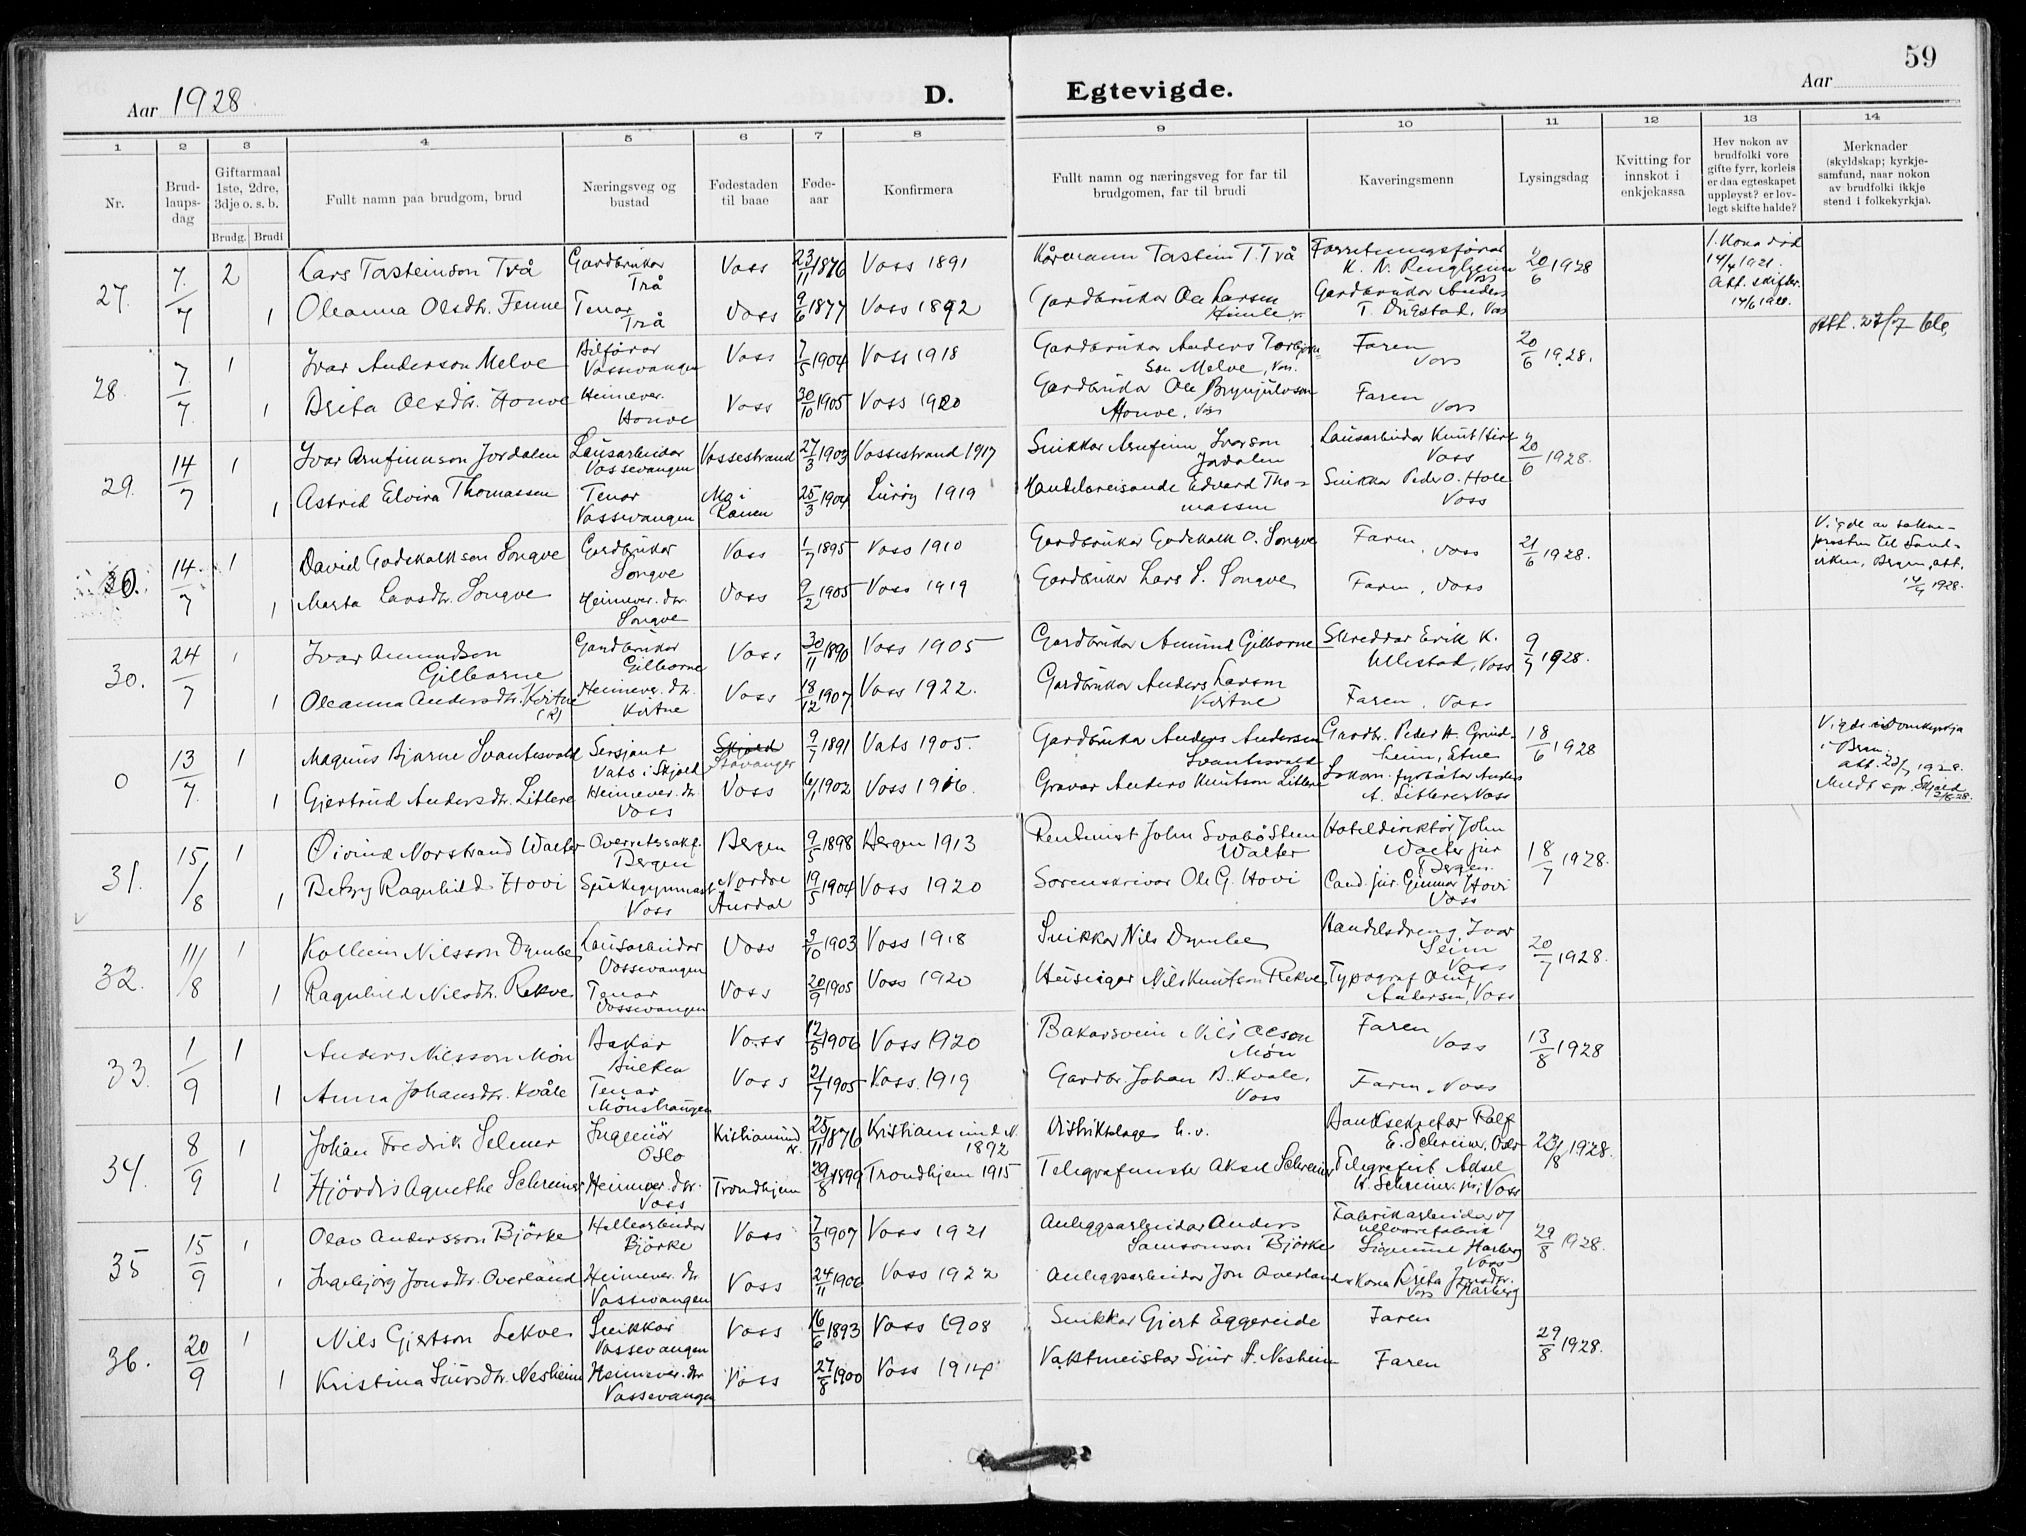 59
Aar 1928. D. Egtevigde. Aar
1 2 3 4 5 6 7 8 9 10 11 12 13 14
Nr.
Brud-
laups-
dag
Giftarmaal
1ste, 2dre,
3dje o. s. b.
Brudg. Brudi
Fullt namn paa brudgom, brud
Næringsveg og
bustad
Fødestaden
til baae
Føde-
aar
Konfirmera
Fullt namn og næringsveg for far til
brudgomen, far til brudi
Kaveringsmenn
Lysingsdag
Kvitting for
innskot i
enkjekassa
Hev nokon av
brudfolki vore
gifte fyrr, korleis
er daa egteskapet
uppløyst? er lov-
legt skifte halde?
Merknader
(skyldskap; kyrkje-
samfund, naar nokon
av brudfolki ikkje
stend i folkekyrkja).
27. 7/7 2 Lars Torsteinson Två Gardbrukar Två Voss 23/11 1876 Voss 1891 Kårmann Torstein T. Två Forretningsførar K. N. Ringheim Voss 20/6 1928 1. Kona død 14/4 1921. Att. skifter. 14/6 1928.
1 Oleanna Olsdtr. Fenne Tenar Två Voss 9/6 1877 Voss 1892 Gardbrukar Ole Larsen Himle, v. Gardbrukar Anders T. Dukstad, Voss
Att. 27/7
28. 7/7 1 Ivar Anderson Melve Bilførar Vossevangen Voss 7/5 1904 Voss 1918 Gardbrukar Anders Torbjørn-
son Melve, Voss. Faren Voss 20/6 1928.
1 Brita Olsdtr. Honve Heimever. Honve Voss 30/10 1905 Voss 1920 Gardbrukar Ole Brynjulvson Honve, Voss Faren Voss
29. 14/7 1 Ivar Arnfinnson Jordalen Lausarbeidar Vossevangen Vossestrand 27/3 1903 Vossestrand 1917 Snikkar Arnfinn Ivarson Jordalen Lausarbeidar Knut Voss 20/6 1928.
1 Astrid Elvira Thomassen Tenar Vossevangen Mo i Ranen 25/3 1904 Lurøy 1919 Handelsreisande Edvard Tho-
massen Snikkar Peder O. Hole Voss
30. 14/7 1 David Godskalkson Songve Gardbrukar Songve Voss 1/7 1895 Voss 1910 Gardbrukar Godskalk O. Songve Faren, Voss 21/6 1928. Vigde av sokne-
presten til Sand-
viken, Bergen, att.
14/7 1928.
1 Marta Larsdtr. Songve Heimever. dtr. Songve Voss 9/2 1905 Voss 1919 Gardbrukar Lars S. Songve Faren, Voss
30. 24/7 1 Ivar Amundson Gilbarne Gardbrukar Gilbarne Voss 30/11 1890 Voss 1905 Gardbrukar Amund Gilbarne Skreddar Erik K. Ullestad, Voss 9/7 1928.
1 Oleanna Andersdtr. Kvitne (K) Heimever. dtr. Kvitne Voss 18/12 1907 Voss 1922. Gardbrukar Anders Larsen Kvitne Faren, Voss
0 13/7 1 Magnus Bjarne Svantesvold Sersjant Vats i Skjold Skjold Stavanger 9/7 1891 Vats 1905. Gardbrukar Anders Andersen Svantesvold Gardbr. Peder H. Grind-
heim, Etne 18/6 1928 Vigde i Domkyrkja
i Bergen.
att. 23/7 1928.
Meldt spr. Skjold
2/8 28.
1 Gjertrud Andersdtr. Litlere Heimever. dtr. Voss Voss 6/1 1902 Voss 1916. Gravar Anders Knutson Litlere Lokom. fyrbøter Anders A. Litlere, Voss
31. 15/8 1 Øivind Norstrand Walter Overretssakf. Bergen Bergen 9/5 1898 Bergen 1913 Rentenist John Svabø Steen Walter Hoteldirektør John Walter jur Bergen 18/7 1928.
1 Betzy Ragnhild Hovi Sjukegymnast Voss Nordre Aurdal 19/5 1904 Voss 1920 Sorenskrivar Ole G. Hovi Cand. jur. Gunnar Hovi Voss
32. 11/8 1 Kolbein Nilsson Dymbe Lausarbeidar Vossevangen Voss 9/10 1903 Voss 1918 Snikkar Nils Dymbe Handelsdreng Ivar Seim Voss 20/7 1928.
1 Ragnhild Nilsdtr. Rekve Tenar Vossevangen Voss 20/9 1905 Voss 1920 Huseigar Nils Knutson Rekve Typograf Andersen, Voss
33. 1/9 1 Anders Nilsson Møn Bakar Bulken Voss 12/5 1906 Voss 1920 Bakarsvein Nils Olson Møn Faren Voss 13/8 1928
1 Anna Johansdtr. Kvåle Tenar Mønshaugen Voss 21/7 1905 Voss. 1919 Gardbr. Johan B. Kvale, Voss Faren, Voss
34. 8/9 1 Johan Fredrik Selmer Ingeniør Oslo Kristiansund N. 25/11 1876 Kristiansund N. 1892 Distriktslæge h.v. Banksekretær Rolf E. Schreiner, Oslo 23/8 1928.
1 Hjördis Agnethe Schreiner Heimever. dtr. Voss Trondhjem 29/8 1899 Trondhjem 1915 Telegrafmester Aksel Schreiner Telegrafist Aksel K. Schreiner jr., Voss
35 15/9 1 Olav Andersson Bjørke Hellearbeidar Bjørke Voss 7/3 1907 Voss 1921 Anleggsarbeidar Anders Samsonson Bjørke Fabrikarbeidar v/ ullvarefabrik Sigmund Harberg Voss 29/8 1928.
1 Ingebjørg Jonsdtr. Overland Heimever. dtr. Vossevangen Voss 24/11 1906 Voss 1922 Anleggsarbeidar Jon Overland Kona Brita Jonsdtr. Harberg Voss
36. 20/9 1 Nils Gjertson Lekve Snikkar Vossevangen Voss 16/6 1893 Voss 1908 Snikkar Gjert Eggereide Faren 29/8 1928.
1 Kristina Sjursdtr. Nesheim Heimever. dtr Vossevangen Voss 27/8 1900 Voss 1914 Vaktmeistar Sjur A. Nesheim Faren